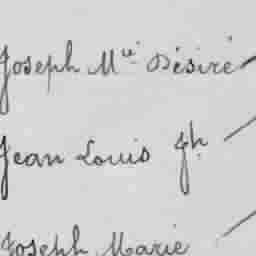 Joseph Mie Désiré
Jean Louis Jh
Joseph Marie